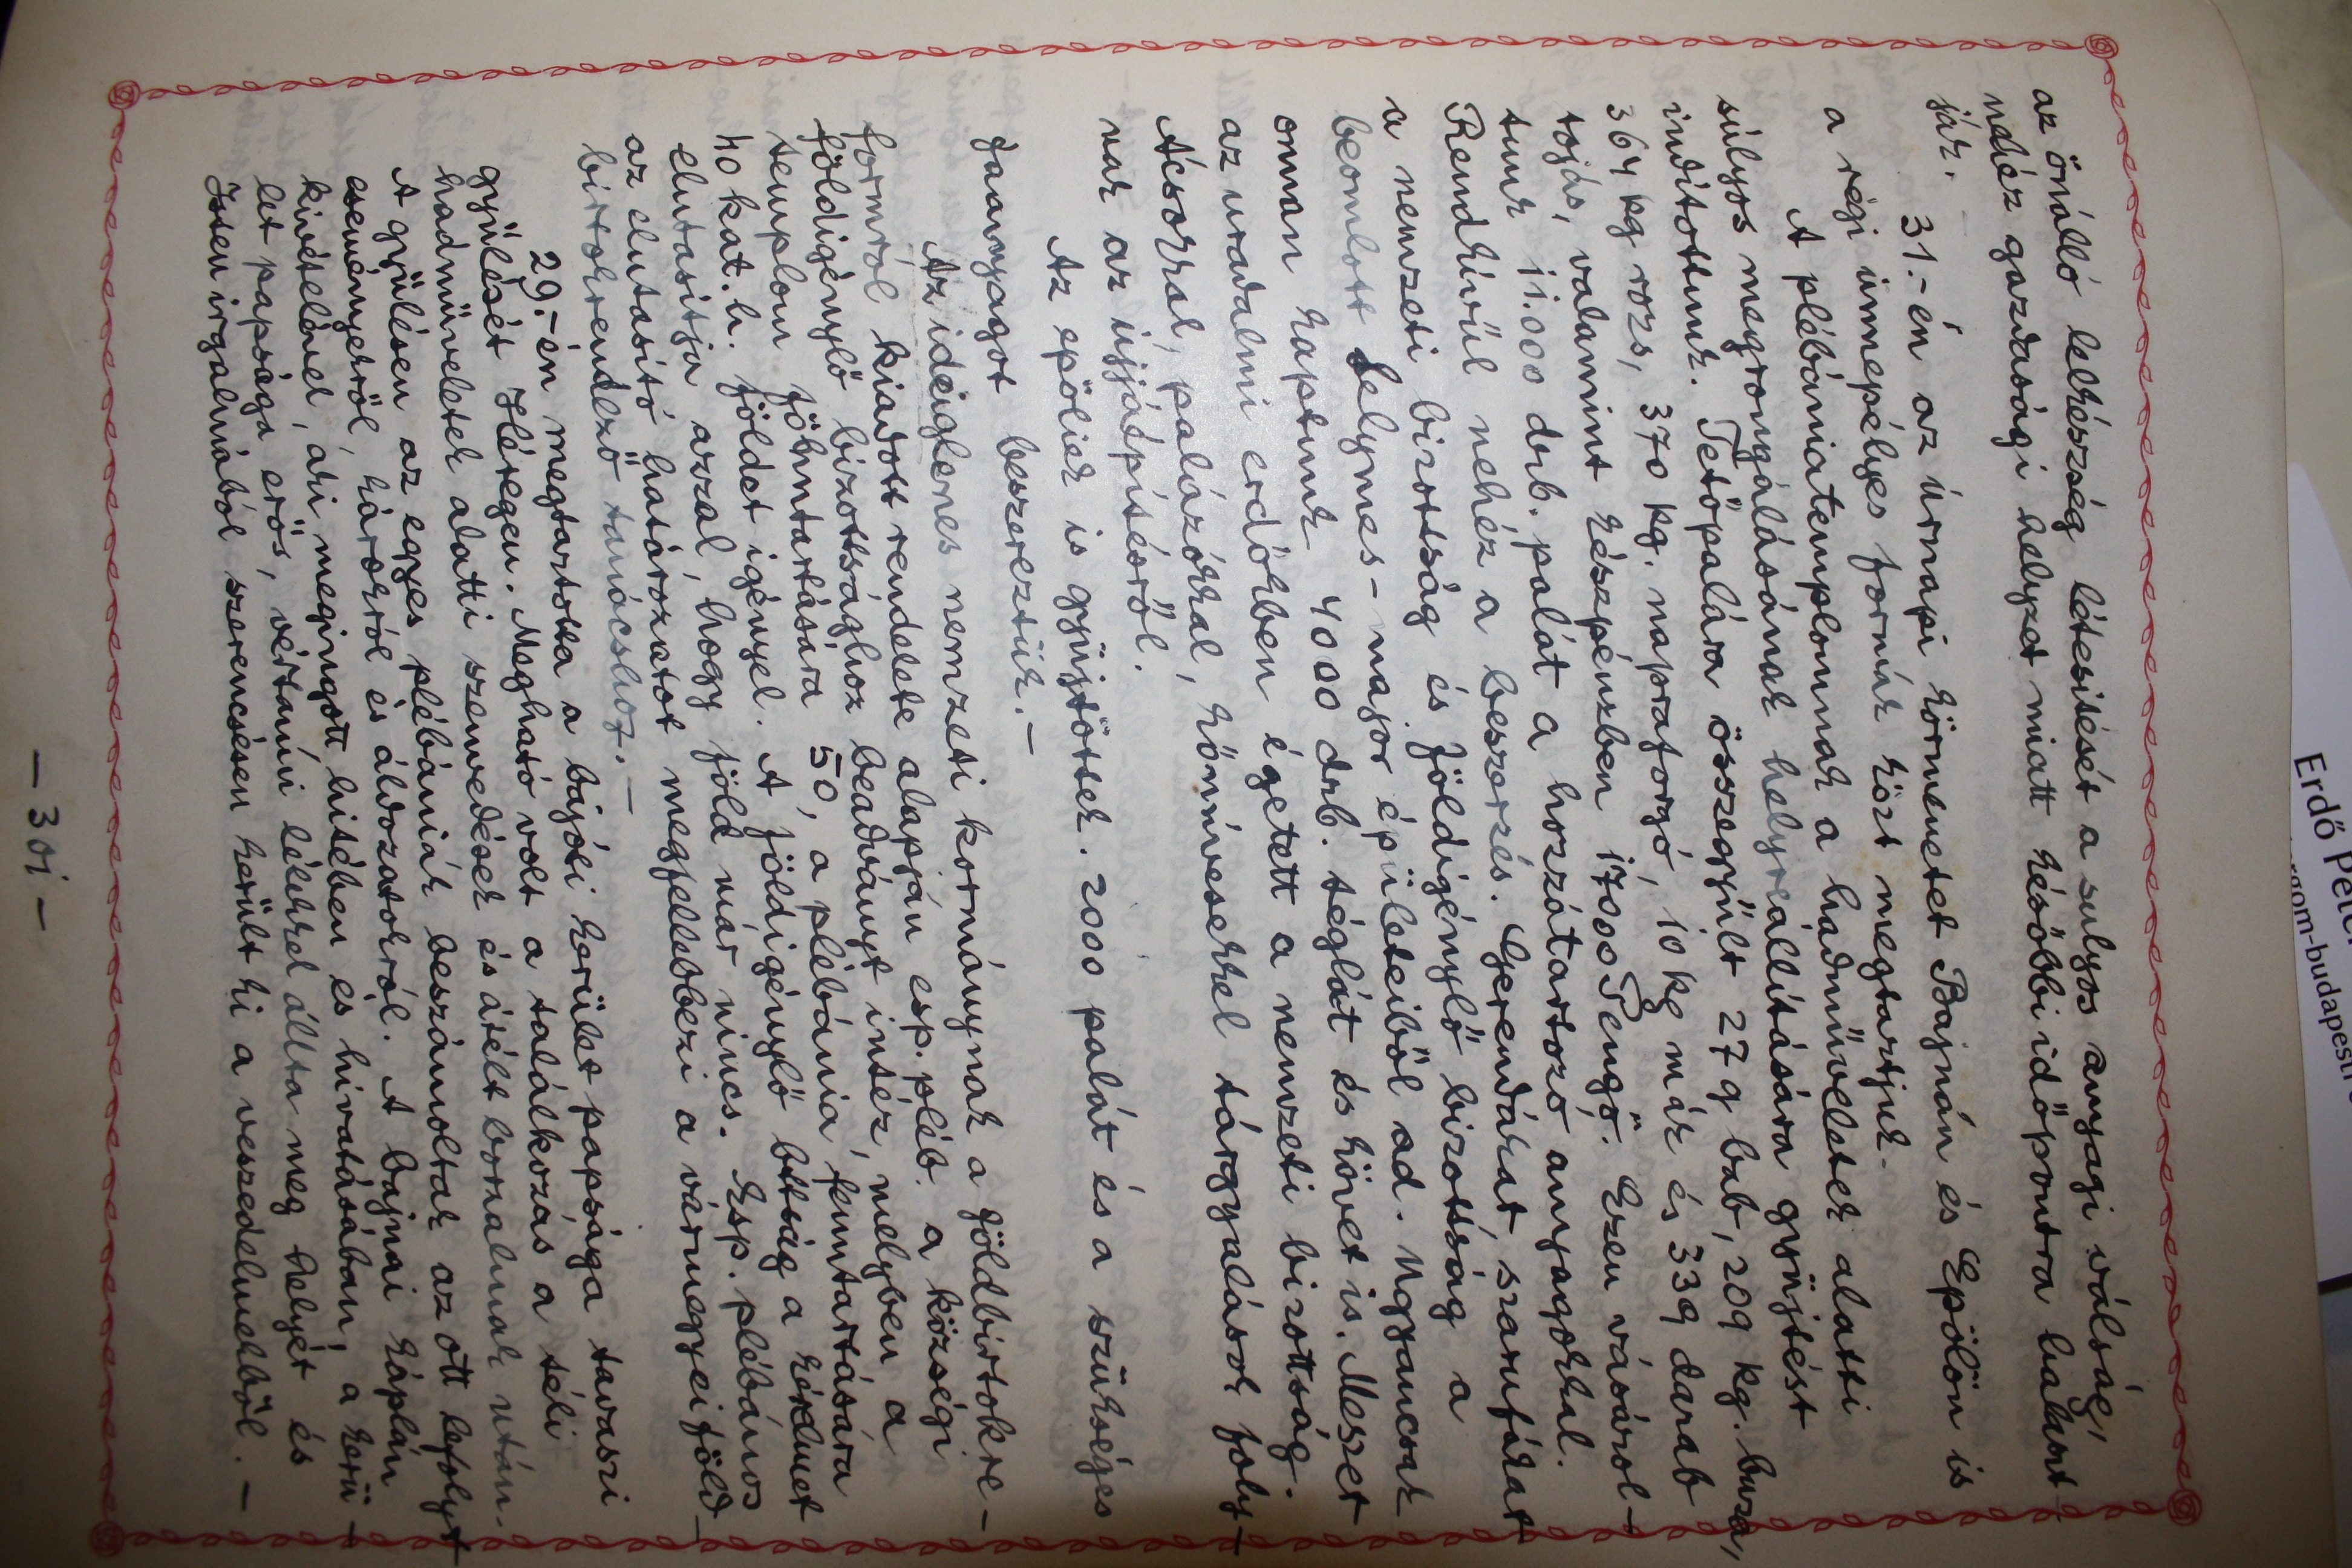 az önálló lelkészség létesitését a sulyos anyagi válság,
nehéz gazdasági helyzet miatt későbbi időpontra halaszt-
ják.
31.-én az úrnapi körmenetet Bajnán és Epölön is
a régi ünnepélyes formák közt megtartjuk.
A plébániatemplomnak a hadműveletek alatti
súlyos megrongálásának helyreállítására gyüjtést
indítottunk. Tetőpalára összegyült 27 q bab, 209 kg. buza,
364 kg rozs, 370 kg. napraforgó, 10 kg mák és 339 darab
tojás, valamint készpénzben 17000 Pengő. Ezen vásárol-
tunk 11.000 drb. palát a hozzátartozó anyagokkal.
Rendkívül nehéz a beszerzés. Gerendákat, szarufákat
a nemzeti bizottság és földigénylő bizottság a
beomlott Selymes-major épületeiből ad. Ugyancsak
onnan kaptunk 4000 drb. téglát és követ is. Meszet
az uradalmi erdőkben égetett a nemzeti bizottság.
Ácsokkal, palázókkal, kőművesekkel tárgyalások foly-
nak az újjáépítésről.
Az epöliek is gyüjtöttek. 2000 palát és a szükséges
faanyagot beszerezték.-
Az ideiglenes nemzeti kormánynak a földbirtokre-
formról kiadott rendelete alapján esp. pléb. a községi
földigénylő bizottsághoz beadványt intéz, melyben a
templom föbntartására 50, a plébánia fenntartására
40 kat. h. földet igényel. A földigénylő bttság a kérelmet
elutasitja azzal, hogy föld már nincs. Esp. plébános
az elutasító határozatot megfellebbezi a vármegyei föld-
birtokrendező tanácshoz.-
29.-én megtartotta a bajóti kerület papsága tavaszi
gyülését Héregen. Megható volt a találkozás a téli
hadműveletek alatti szenvedések és átélt borzalmak után.
A gyülésen az egyes plébániák beszámoltak az ott lefolyt
eseményekről, károkról és áldozatokról. A bajnai káplán
kivételével, aki megingott hitében és hivatásában, a kerü-
let papsága erős, vértanúi lélekkel állta meg helyét és
Isten irgalmából szerencsésen került ki a veszedelmekből.-
- 301 -
Erdő Péter